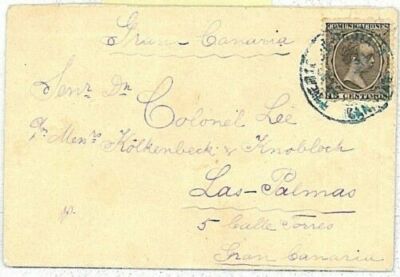 COMUNICACIONES
15 CENTIMO
Gran-Canaria
Senr Dn
Colonel Lee
p/r Menrs Kölkenbeck & Knobloch
Las-Palmas
5 Calle Torres
Gran Canaria